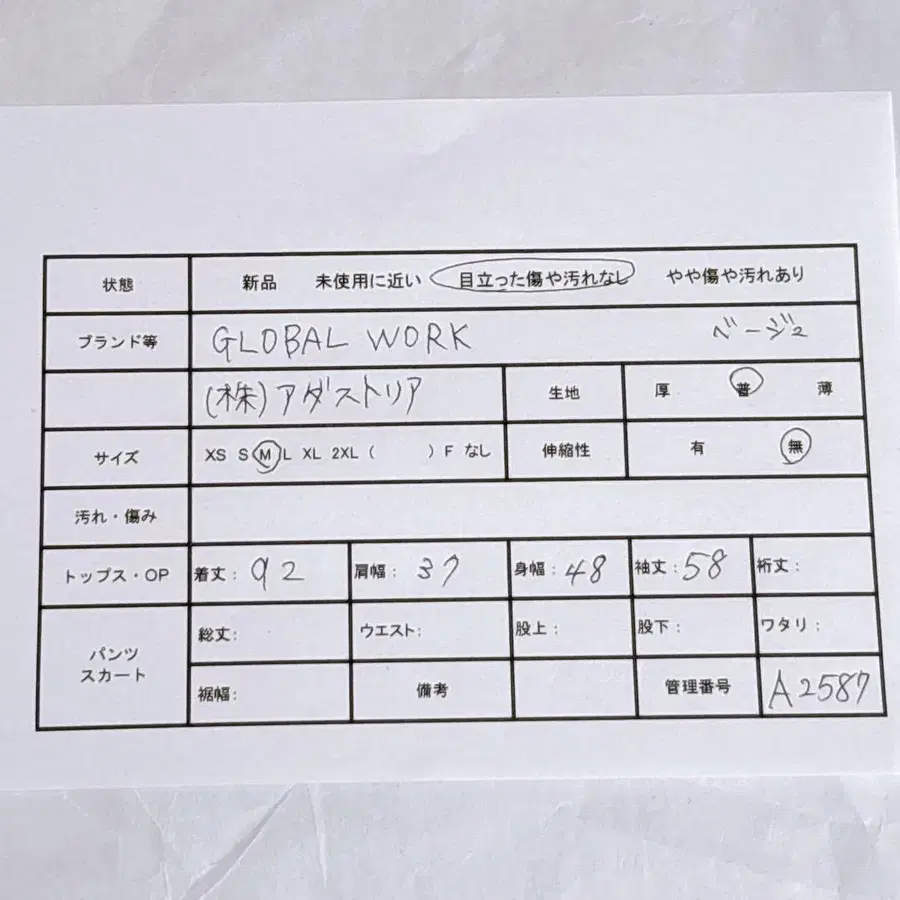 状態 新品 未使用に近い 目立った傷や汚れなし やや傷や汚れあり
ブランド等 GLOBAL WORK ベージュ
(株)アダストリア 生地 厚 普 薄
サイズ XS S M L XL 2XL ( ) F なし 伸縮性 有 無
汚れ・傷み
トップス・OP 着丈: 92 肩幅: 37 身幅: 48 袖丈: 58 裄丈:
パンツ スカート 総丈: ウエスト: 股上: 股下: ワタリ:
裾幅: 備考 管理番号 A2587